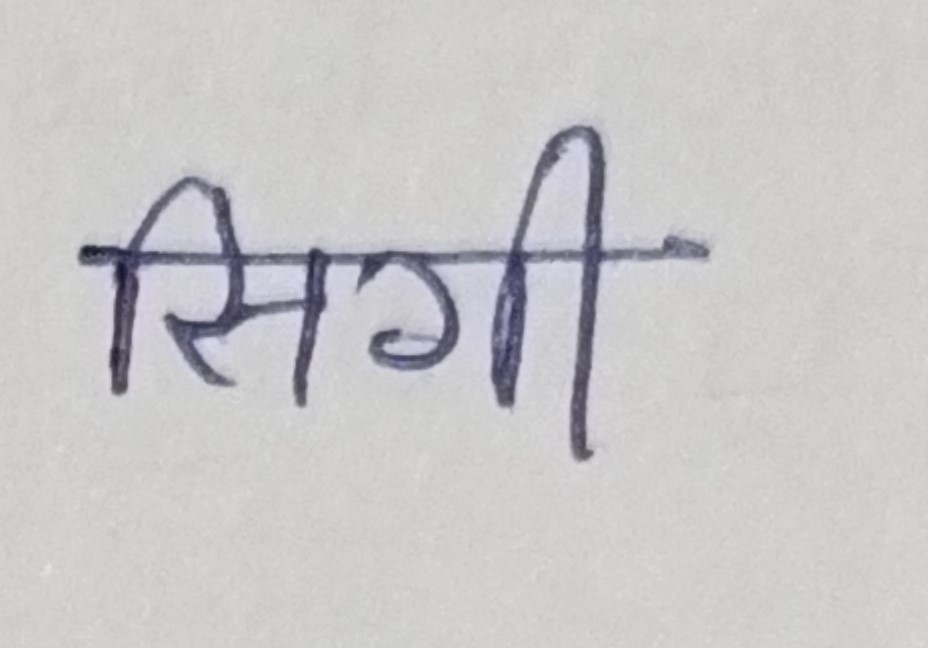 सिगी